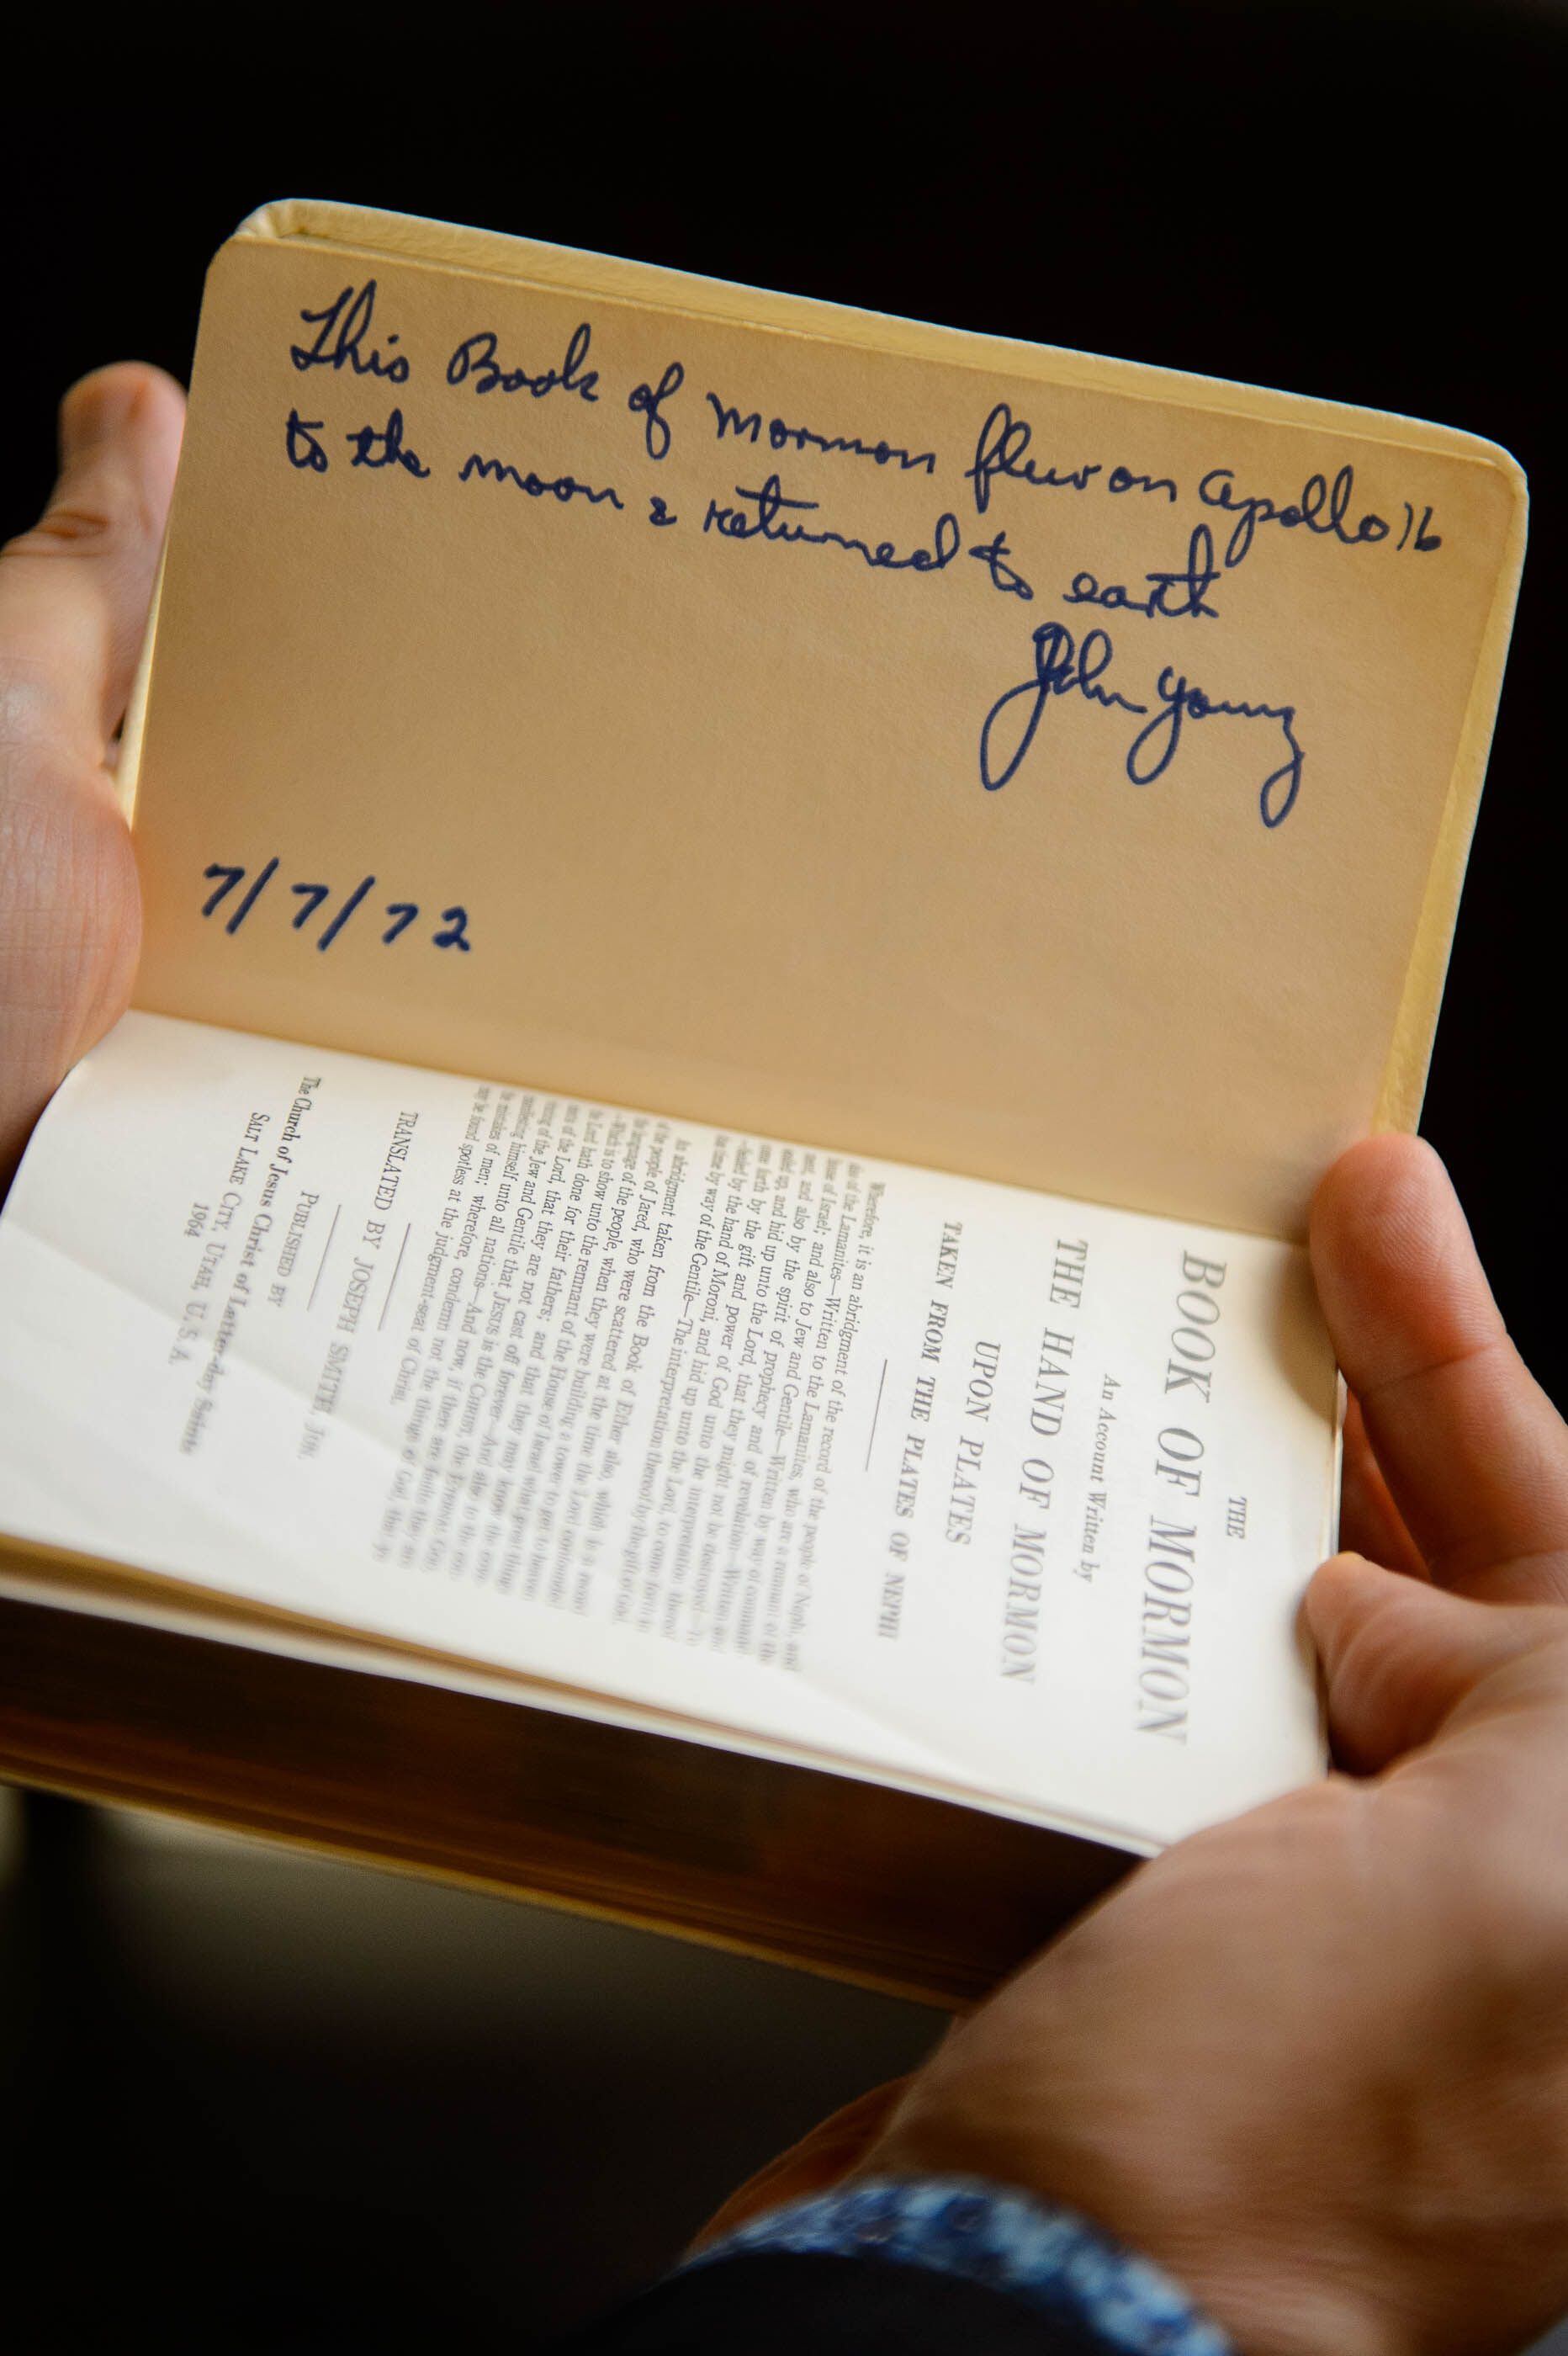 This Book of Mormon flew on Apollo 16
to the moon & returned to earth
John Young
7/7/72
THE
BOOK OF MORMON
An Account Written by
THE HAND OF MORMON
UPON PLATES
TAKEN FROM THE PLATES OF NEPHI
Wherefore, it is an abridgment of the record of the people of Nephi, and
of the Lamanites—Written to the Lamanites, who are a remnant of the
house of Israel; and also to Jew and Gentile—Written by way of
and also by the spirit of prophecy and of revelation—Written and
up, and hid up unto the Lord, that they might not be destroyed—To
forth by the gift and power of God unto the interpretation thereof—
by the hand of Moroni, and hid up unto the Lord, to come forth in
time by way of the Gentile—The interpretation thereof by the gift of God.
abridgment taken from the Book of Ether also, which is a record
the people of Jared, who were scattered at the time the Lord confounded
the language of the people, when they were building a tower to get to heaven
—Which is to show unto the remnant of the House of Israel what great things
the Lord hath done for their fathers; and that they may know the
of the Lord, that they are not cast off forever—And also to the
of the Jew and Gentile that JESUS is the CHRIST, the ETERNAL GOD,
himself unto all nations—And now, if there are faults they are
the mistakes of men; wherefore, condemn not the things of God, that ye
may be found spotless at the judgment-seat of Christ.
TRANSLATED BY JOSEPH SMITH, JUN.
PUBLISHED BY
The Church of Jesus Christ of Latter-day Saints
SALT LAKE CITY, UTAH, U.S.A.
1964